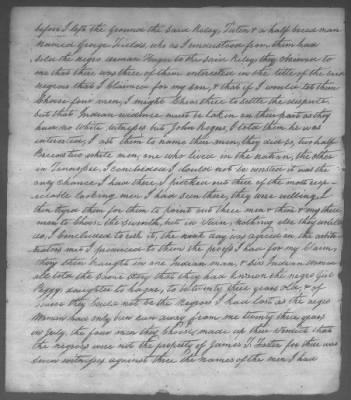 before I left the ground the said Riley, Tuten & a half breed man
named George Fields who as I understood from them had
sold the negro woman Hagar to the said Riley; they claimed to
me that there was three of them interested in the title of the said
negroes that I claimed for my son, & that if I would let them
choose four men, I might choose three to settle the dispute
but that Indian evidence must be taken on their part as they
had no white witness but John Rogers, I told them he was
interested, I ask them to name their men, they did so, two half
Breeds two white men, one who lived in the nation, the other
in Tennessee, I concluded I should not be worsted it was the
only chance I had there, I picked out three of the most resp-
ectable looking men I had seen there, they were willing, I
then them for them to point out three men & then & my three
men to choose the seventh but in vain, nothing else they would
do, I concluded to risk it, the next day we agreed on the arbit-
rators met I produced to them the proofs I had for my claim,
they then brought in one Indian man, & six Indian women
all told the same story that they had known the negro girl
Peggy, daughter to Hagar, to be twenty three years old, & of
course they could not be the negroes I had lost as the negro
woman had only been run away from me twenty three years
in July, the four men they chose made up their verdict that
the negroes were not the property of James T. Foster for there was
seven witnesses against three the names of the men I had